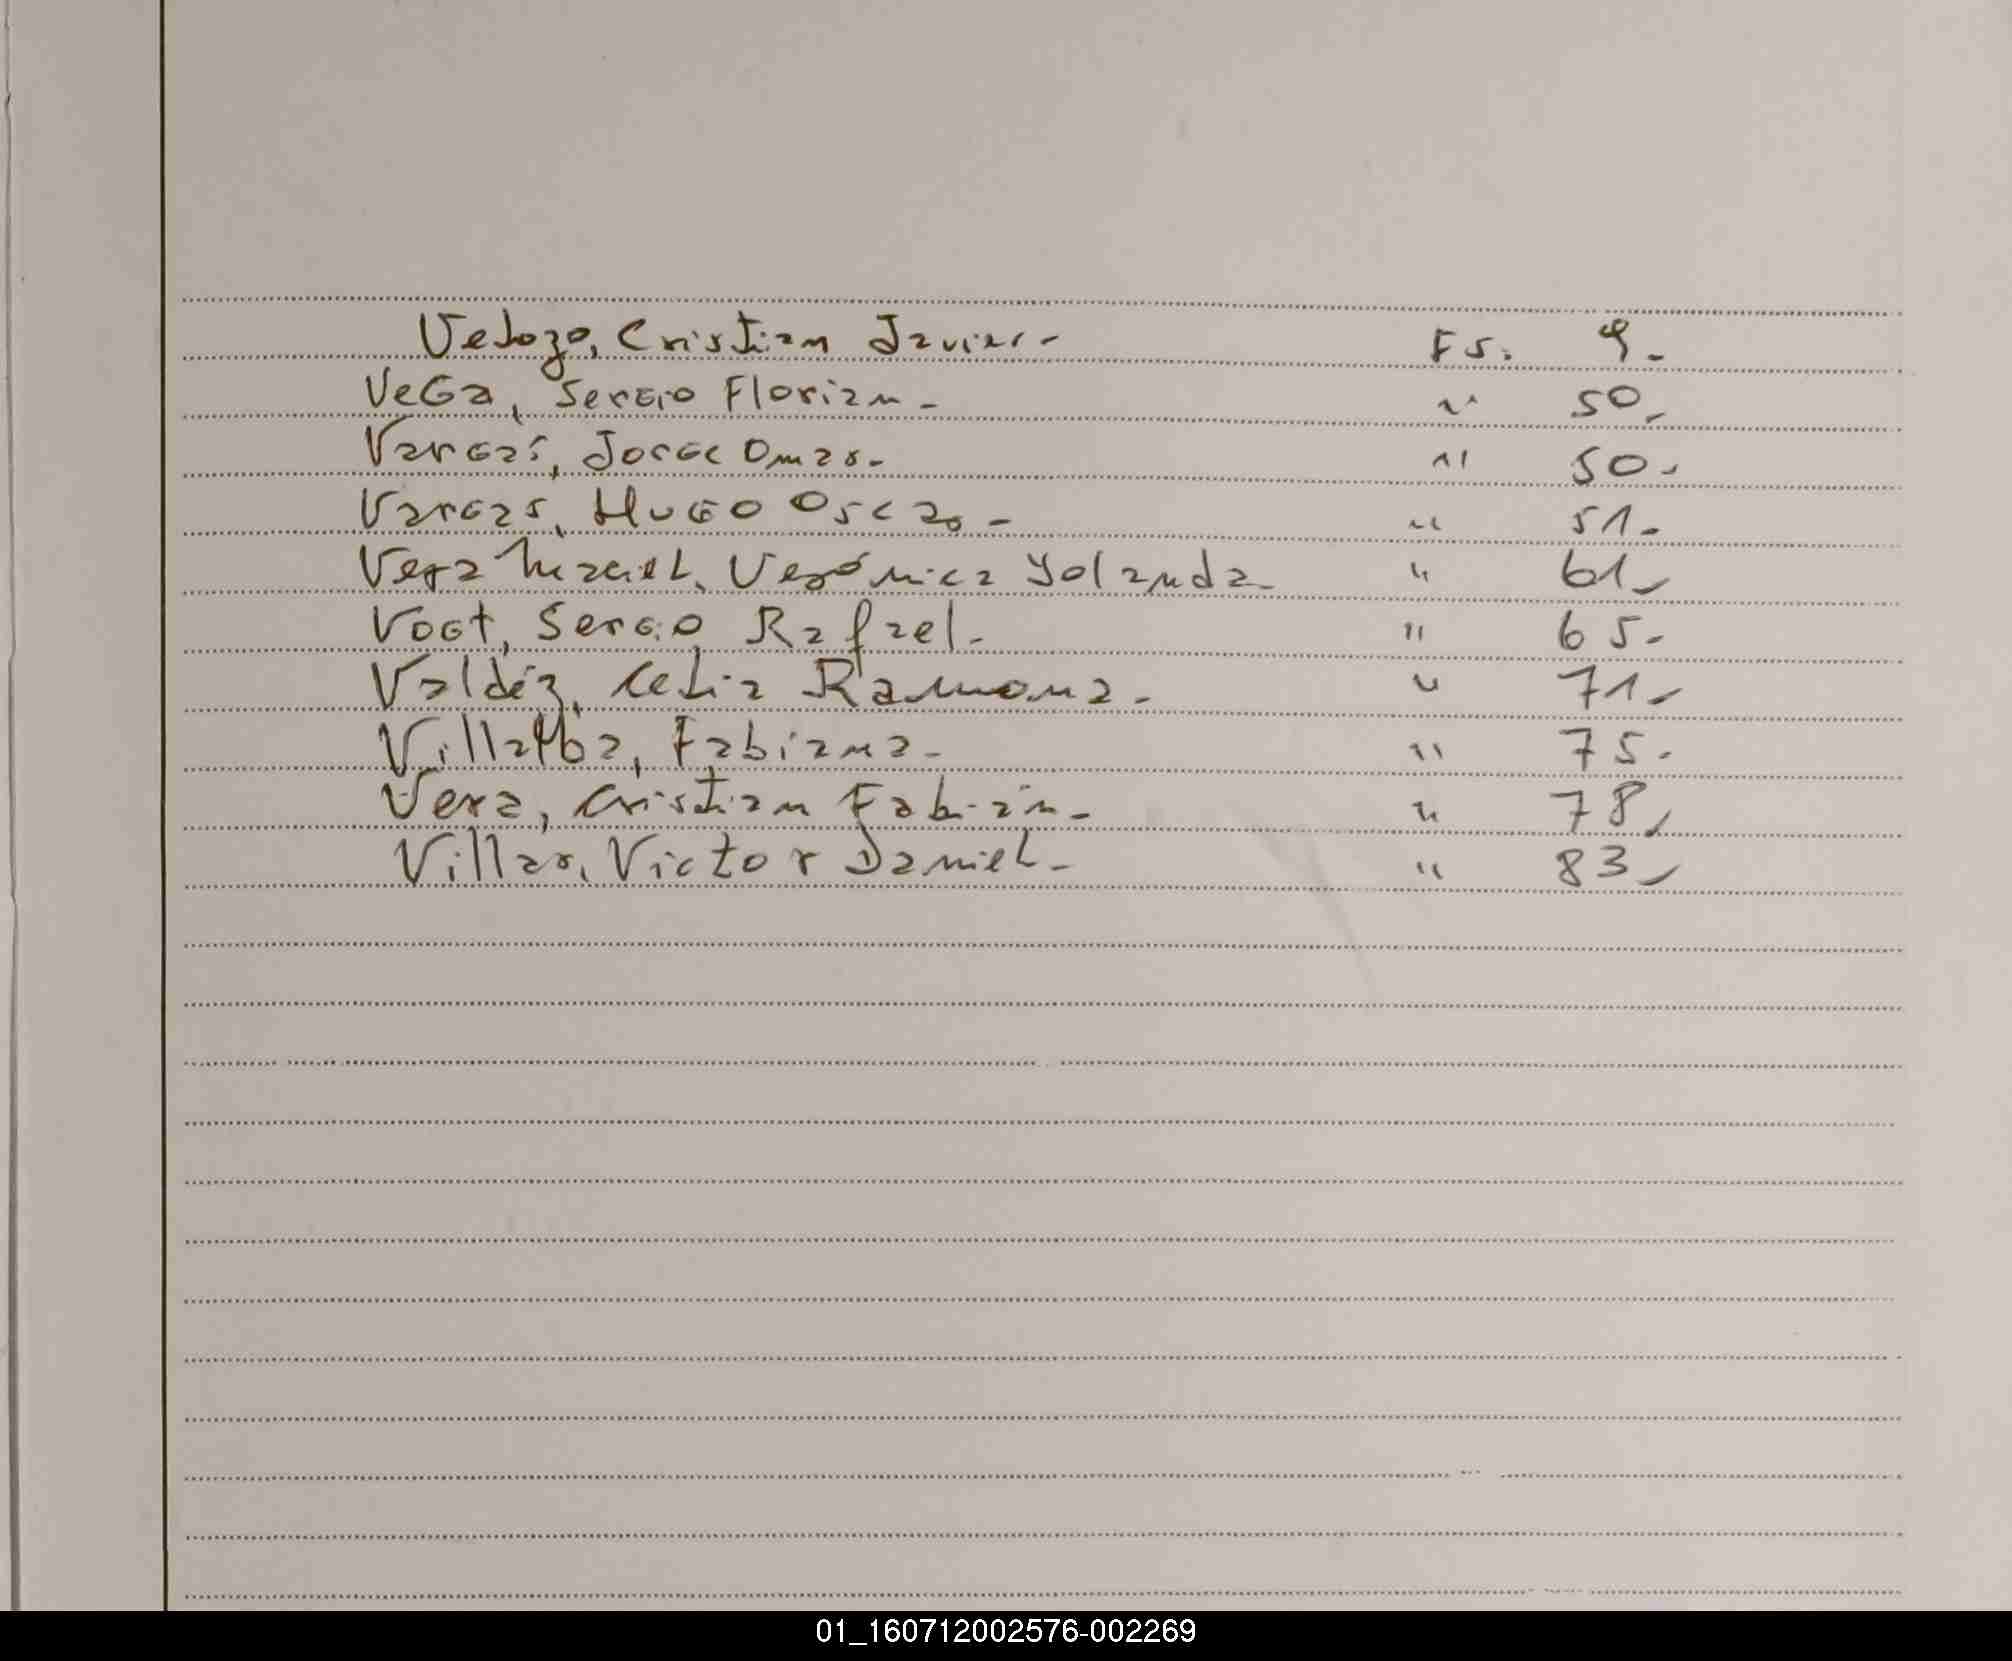 Velozo, Cristian Javier.- Fs. 9.-
Vega, Sergio Florian.- " 50.-
Vargas, Jorge Omar.- " 50.-
Vargas, Hugo Oscar.- " 51.-
Vera Maciel, Verónica Yolanda.- " 61.-
Vogt, Sergio Rafael.- " 65.-
Valdéz, Celia Ramona.- " 71.-
Villalba, Fabiana.- " 75.-
Vera, Cristian Fabián.- " 78.-
Villar, Victor Daniel.- " 83.-
01_160712002576-002269